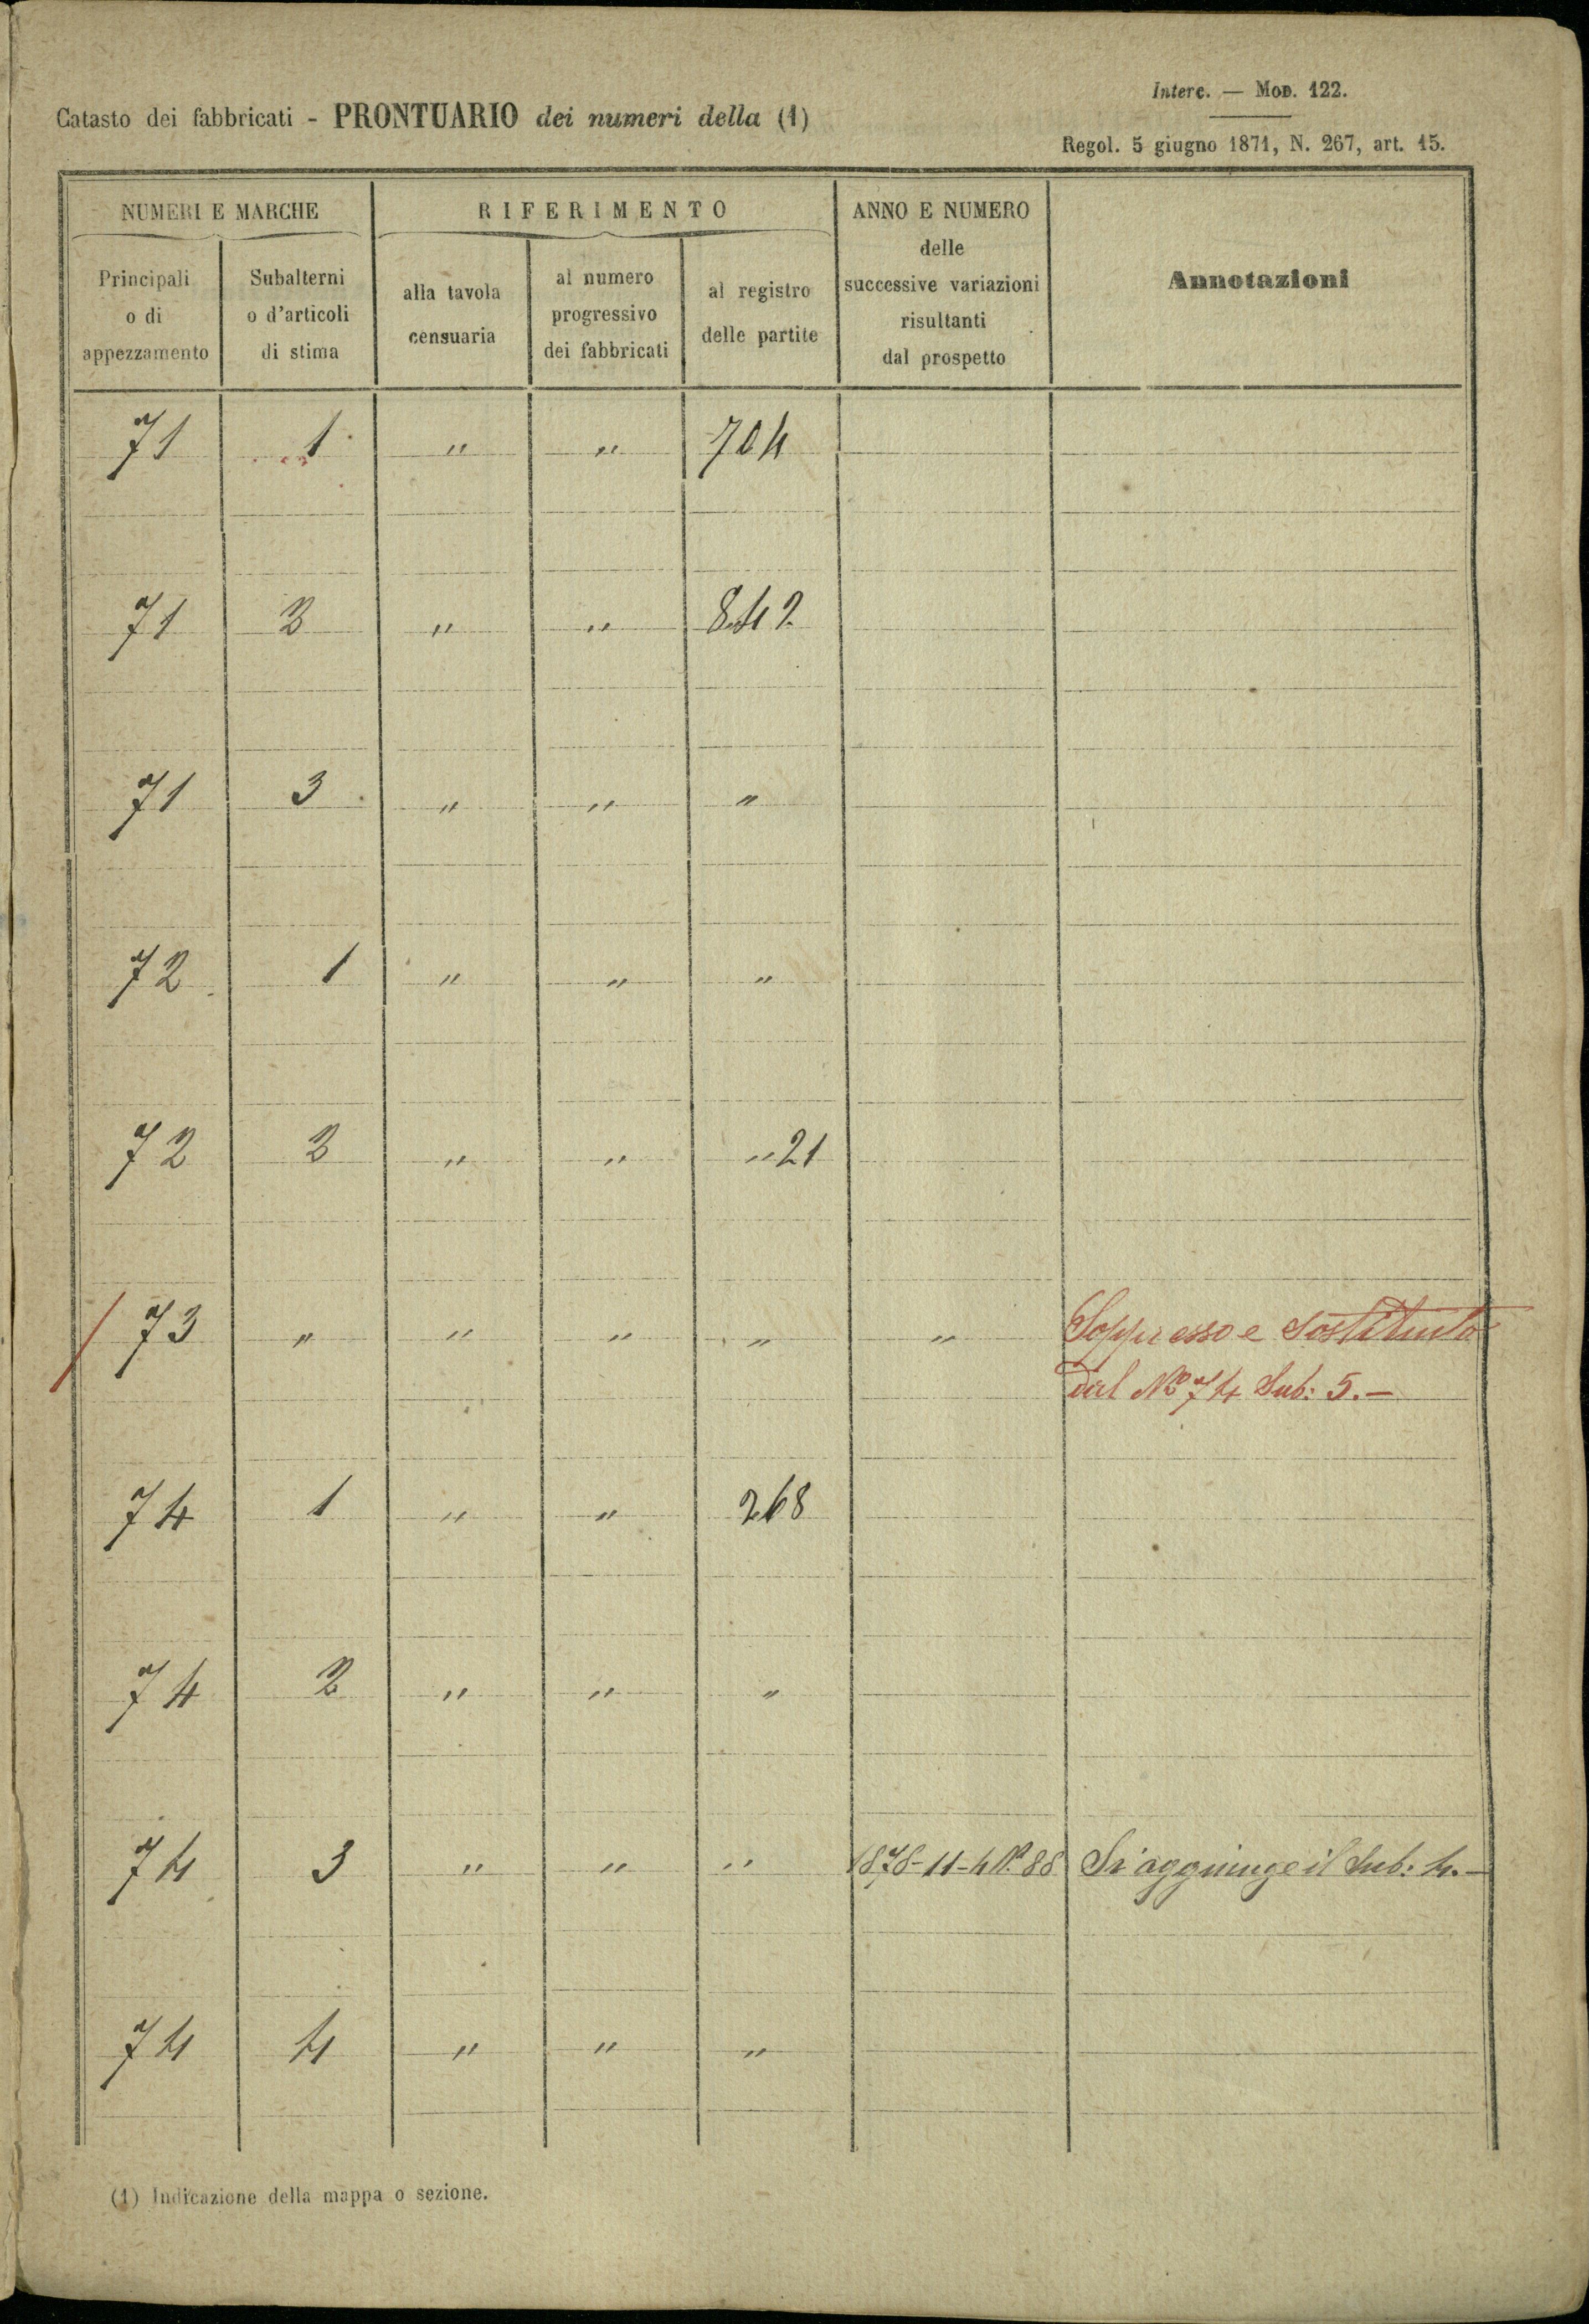 Interc. — Mod. 122.
Catasto dei fabbricati - PRONTUARIO dei numeri della (1)
Regol. 5 giugno 1871, N. 267, art. 15.
NUMERI E MARCHE
RIFERIMENTO
ANNO E NUMERO
delle
successive variazioni
risultanti
dal prospetto
Annotazioni
Principali
o di
appezzamento
Subalterni
o d'articoli
di stima
alla tavola
censuaria
al numero
progressivo
dei fabbricati
al registro
delle partite
71 1 " " 704
71 2 " " 842
71 3 " " "
72 1 " " "
72 2 " " " 21
73 " " " " " Soppresso e sostituito
dal No 74 Sub: 5.—
74 1 " " 268
74 2 " " "
74 3 " " " 1878-11-4 No. 88 Si aggiunge il Sub: 4.—
74 4 " " "
(1) Indicazione della mappa o sezione.